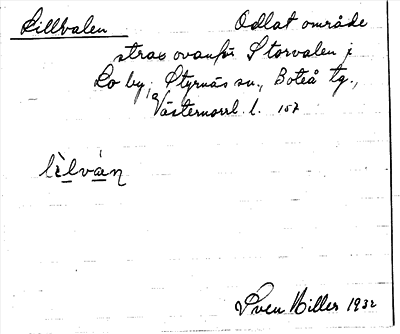 Lillvalen Odlat område
strax ovanför Storvalen i
Lo by, Styrnäs sn., Boteå tg.,
Västernorrl. l. 157
lìlvàn
Sven Hiller 1932